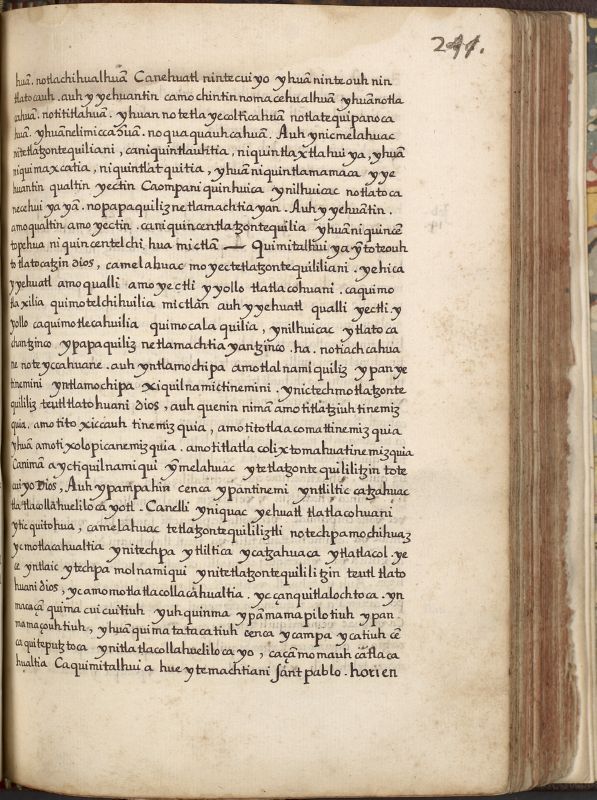 244.
huā. notlachihualhuā Canehuatl nintecuiyo yhuā ninteouh nin
tlatocauh. auh yyehuantin camochintin nomacehualhuā yhuā notla
cahuā. notititlahuā. yhuan notetlayecolticahuā notlatequipanoca
huā. yhuā nelimiccahuā. noquaquauhcahuā. Auh ynicmelahuac
nitetlatzontequiliani, caniquintlauhtia, niquintlaxtlahuiya, yhuā
niquimaxcatia, niquintlatquitia, yhuā niquintlamamaca yye
huantin qualtin yectin Caompa niquinhuica ynilhuicac notlatoca
necehuiyayā. nopapaquiliz netlamachtiayan. Auh yyehuātin.
amoqualtin amoyectin. caniquincentlatzontequilia yhuā niquincē
topehua niquincentelchihua mictlā — Quimitalhuiya yn̄ toteouh
totlatocatzin dios, camelahuac moyectetlatzontequililiani. yehica
yyehuatl amoqualli amoyectli yyollo tlatlacohuani. caquimo
tlaxilia quimotelchihuilia mictlān auh yyehuatl qualli yectli. y
yollo caquimotlecahuilia quimocalaquilia, ynilhuicac ytlatoca
chantzinco ypapaquiliz netlamachtiayantzinco. ha. notiachcahua
ne noteyccahuane. auh yntlamochipa amotlalnamiquiliz ypanye
tinemini yntlamochipa xiquilnamictinemini. ynictechmotlatzonte
quililiz teutl tlatohuani dios, auh quenin nimā amo titlatziuhtinemiz
quia. amo titoxiccauhtinemizquia, amo titotlaacomattinemizquia
yhuā amo tixolopicanemizquia. amo titlatlacolixtomahuatinemizquia
Canimā ayctiquilnamiqui yn̄ melahuac ytetlatzontequililitzin tote
cuiyo Dios, Auh ypampahin cenca ypantinemi yntliltic catzahuac
tlatlacollahuelilocayotl. Canelli yniquac yehuatl tlatlacohuani
yticquitohua, camelahuac tetlatzontequililiztli notechpamochihuaz
ycmotlacahualtia ynitechpa ytliltica ycatzahuaca ytlatlacol. ye
ce yntlaic ytechpa molnamiqui ynitetlatzontequililitzin teutl tlato
huani dios, ycamomotlatlacollacahualtia. yc çan quitlalochtoca. yn
macaçā quimacuicuitiuh yuhquinma ypā mamapilotiuh ypan
mamaçouhtiuh, yhuā quimatatacatiuh cenca ycampa ycatiuh cē
caquiteputztoca ynitlatlacollahuelilocayo, caçā momauhcātlaca
hualtia Caquimitalhuia hueytemachtiani sant pablo. horien